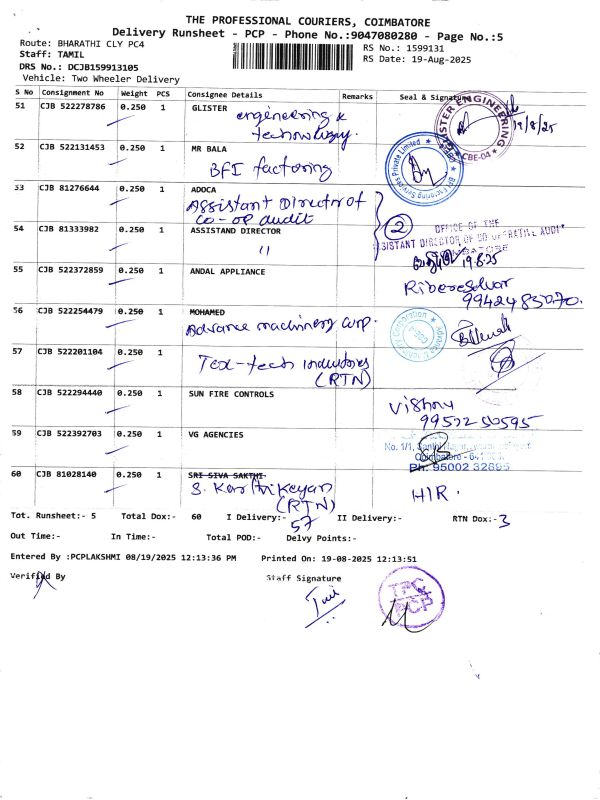 THE PROFESSIONAL COURIERS, COIMBATORE
Delivery Runsheet - PCP - Phone No.:9047080280 - Page No.:5
Route: BHARATHI CLY PC4
Staff: TAMIL
RS No.: 1599131
DRS No.: DCJB159913105
RS Date: 19-Aug-2025
Vehicle: Two Wheeler Delivery
S No Consignment No Weight PCS Consignee Details Remarks Seal & Signature
51 CJB 522278786 0.250 1 GLISTER
engineering &
technology
19/8/25
ENGINEERING
CBE-04
52 CJB 522131453 0.250 1 MR BALA
BFI factoring
Private Limited
53 CJB 81276644 0.250 1 ADOCA
Assistant Director of
co-op audit
2
54 CJB 81333982 0.250 1 ASSISTAND DIRECTOR
"
OFFICE OF THE
ASSISTANT DIRECTOR OF CO OPERATIVE AUDIT
19.8.25
55 CJB 522372859 0.250 1 ANDAL APPLIANCE
56 CJB 522254479 0.250 1 MOHAMED
Advance machinery corp.
Corporation
57 CJB 522201104 0.250 1
Tex-tech industries
(RTN)
58 CJB 522294440 0.250 1 SUN FIRE CONTROLS
Vishnu
59 CJB 522392703 0.250 1 VG AGENCIES
No. 1/1,
Coimbatore - 641
Ph: 95002 32695
60 CJB 81028140 0.250 1 SRI SIVA SAKTHI
S. Karthikeyan
(RTN)
HIR.
Tot. Runsheet:- 5 Total Dox:- 60 I Delivery:- 57 II Delivery:- RTN Dox:- 3
Out Time:- In Time:- Total POD:- Delvy Points:-
Entered By :PCPLAKSHMI 08/19/2025 12:13:36 PM Printed On: 19-08-2025 12:13:51
Verified By
Staff Signature
TPC
PCP